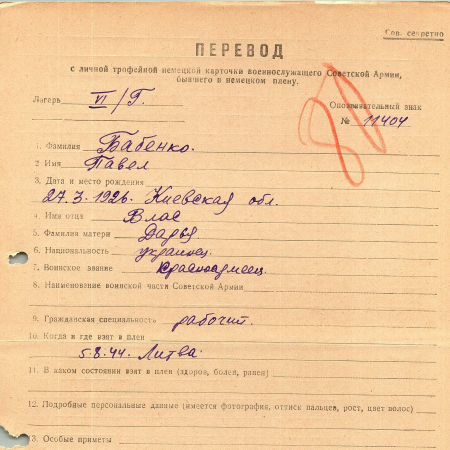 Сов. секретно
ПЕРЕВОД
с личной трофейной немецкой карточки военнослужащего Советской Армии,
бывшего в немецком плену.
Лагерь VI/Г.
Опознавательный знак
№ 11404
80
1. Фамилия Бабенко.
2. Имя Павел
3. Дата и место рождения
27.3.1926. Киевская обл.
4. Имя отца Влас
5. Фамилия матери Дарья
6. Национальность украинец.
7. Воинское звание Красноармеец.
8. Наименование воинской части Советской Армии
9. Гражданская специальность рабочий.
10. Когда и где взят в плен
5.8.44. Литва.
11. В каком состоянии взят в плен (здоров, болен, ранен)
12. Подробные персональные данные (имеется фотография, оттиск пальцев, рост, цвет волос)
13. Особые приметы